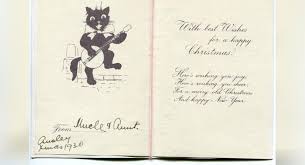 From Uncle & Aunt.
Xmas 1930
With best Wishes
for a happy
Christmas.
Here's wishing you joy,
Here's wishing you cheer,
For a merry old Christmas
And happy New Year.